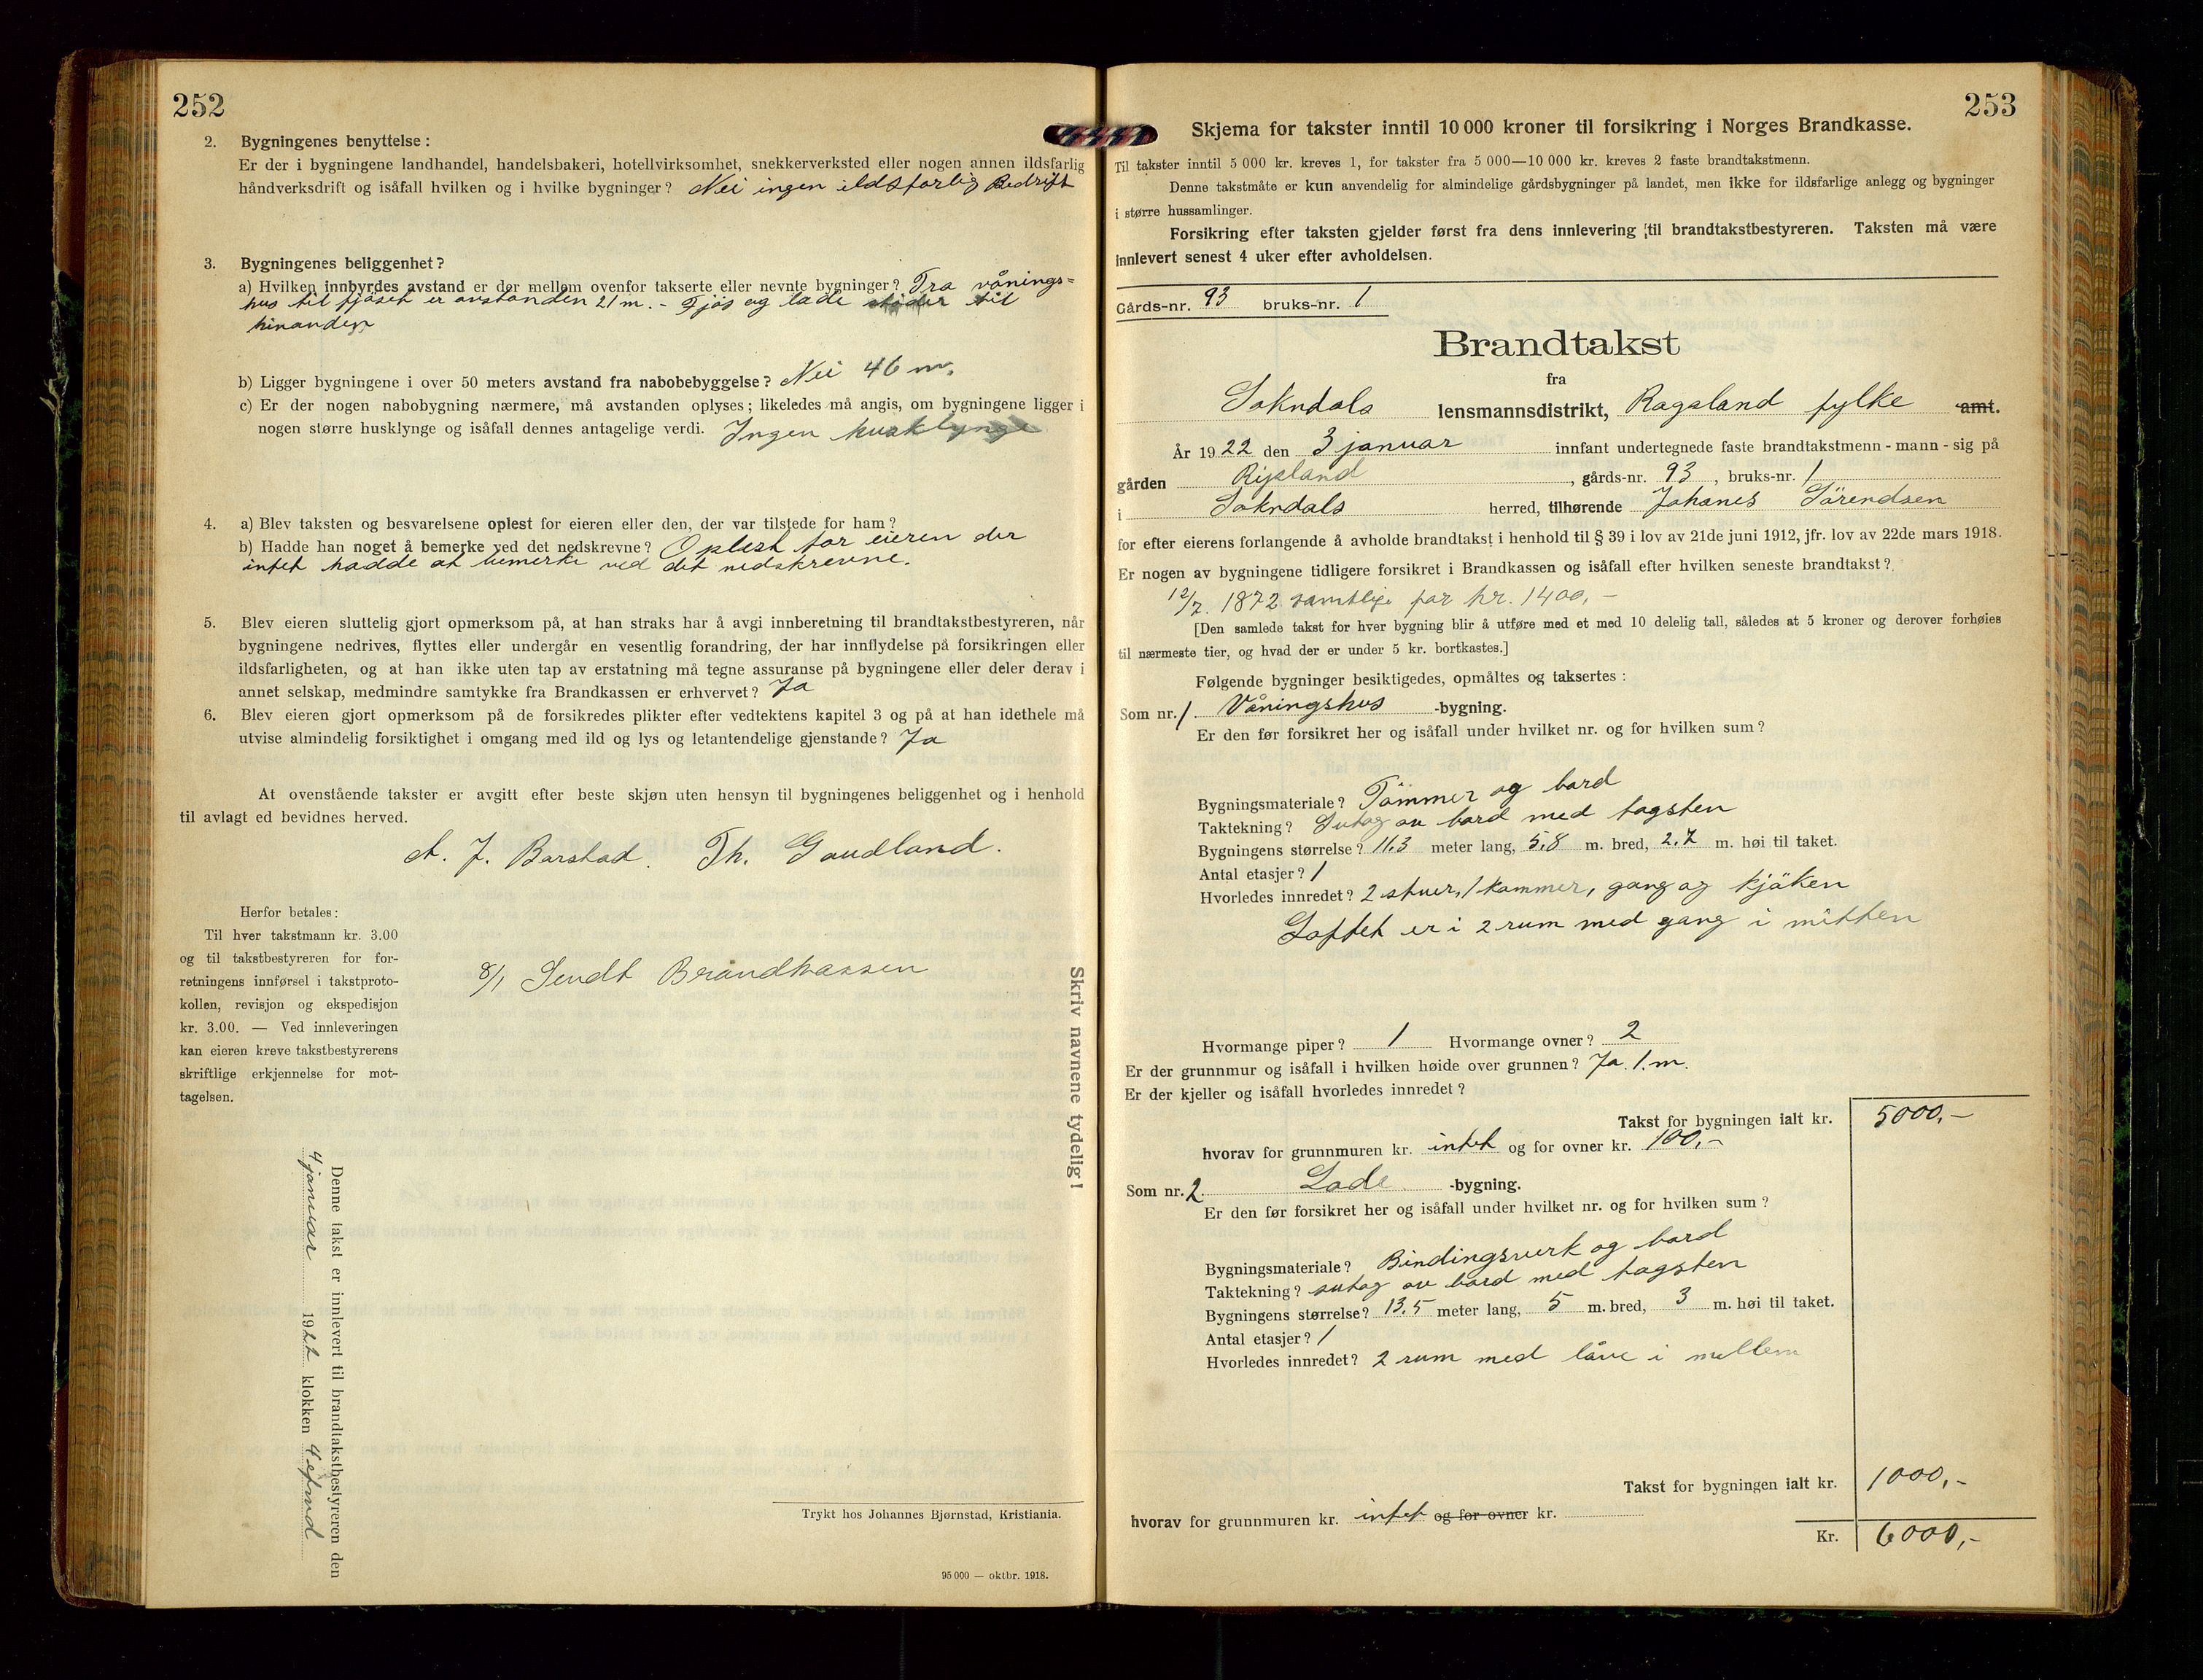 252
2. Bygningenes benyttelse:
Er der i bygningene landhandel, handelsbakeri, hotellvirksomhet, snekkerverksted eller nogen annen ildsfarlig
håndverksdrift og isåfall hvilken og i hvilke bygninger? Nei ingen ildsfarlig Bedrift
3. Bygningenes beliggenhet?
a) Hvilken innbyrdes avstand er der mellom ovenfor takserte eller nevnte bygninger? Fra vånings=
hus til fjøset er avstanden 21 m. - Fjøs og lade støder til
hinanden
b) Ligger bygningene i over 50 meters avstand fra nabobebyggelse? Nei 46 m.
c) Er der nogen nabobygning nærmere, må avstanden oplyses; likeledes må angis, om bygningene ligger i
nogen større husklynge og isåfall dennes antagelige verdi. Ingen husklynge
4. a) Blev taksten og besvarelsene oplest for eieren eller den, der var tilstede for ham?
b) Hadde han noget å bemerke ved det nedskrevne? Oplest for eieren der
intet hadde at bemerke ved det nedskrevne.
5. Blev eieren sluttelig gjort opmerksom på, at han straks har å avgi innberetning til brandtakstbestyreren, når
bygningene nedrives, flyttes eller undergår en vesentlig forandring, der har innflydelse på forsikringen eller
ildsfarligheten, og at han ikke uten tap av erstatning må tegne assuranse på bygningene eller deler derav i
annet selskap, medmindre samtykke fra Brandkassen er erhvervet? Ja
6. Blev eieren gjort opmerksom på de forsikredes plikter efter vedtektens kapitel 3 og på at han idethele må
utvise almindelig forsiktighet i omgang med ild og lys og letantendelige gjenstande? Ja
At ovenstående takster er avgitt efter beste skjøn uten hensyn til bygningenes beliggenhet og i henhold
til avlagt ed bevidnes herved.
A. J. Barstad. Th. Gaudland.
Herfor betales:
Til hver takstmann kr. 3.00
og til takstbestyreren for for-
retningens innførsel i takstproto-
kollen, revisjon og ekspedisjon
kr. 3.00. — Ved innleveringen
kan eieren kreve takstbestyrerens
skriftlige erkjennelse for mot-
tagelsen.
8/1 Sendt Brandkassen
Skriv navnene tydelig!
Denne takst er innlevert til brandtakstbestyreren den
4 januar 1922 klokken 4 efmd
Trykt hos Johannes Bjørnstad, Kristiania.
95 000 — oktbr. 1918.
253
Skjema for takster inntil 10 000 kroner til forsikring i Norges Brandkasse.
Til takster inntil 5 000 kr. kreves 1, for takster fra 5 000—10 000 kr. kreves 2 faste brandtakstmenn.
Denne takstmåte er kun anvendelig for almindelige gårdsbygninger på landet, men ikke for ildsfarlige anlegg og bygninger
i større hussamlinger.
Forsikring efter taksten gjelder først fra dens innlevering til brandtakstbestyreren. Taksten må være
innlevert senest 4 uker efter avholdelsen.
Gårds-nr. 93 bruks-nr. 1
Brandtakst
fra
Sokndals lensmannsdistrikt, Rogaland fylke amt.
År 1922 den 3 januar innfant undertegnede faste brandtakstmenn - mann - sig på
gården Rijsland, gårds-nr. 93, bruks-nr. 1
i Sokndals herred, tilhørende Johanes Sörendsen
for efter eierens forlangende å avholde brandtakst i henhold til § 39 i lov av 21de juni 1912, jfr. lov av 22de mars 1918.
Er nogen av bygningene tidligere forsikret i Brandkassen og isåfall efter hvilken seneste brandtakst?
12/7. 1872 samtlige for kr. 1400,-
[Den samlede takst for hver bygning blir å utføre med et med 10 delelig tall, således at 5 kroner og derover forhøies
til nærmeste tier, og hvad der er under 5 kr. bortkastes.]
Følgende bygninger besiktigedes, opmåltes og taksertes:
Som nr. 1. Våningshus -bygning.
Er den før forsikret her og isåfall under hvilket nr. og for hvilken sum?
Bygningsmateriale? Tömmer og bord
Taktekning? Sutag av bord med tagsten
Bygningens størrelse? 11.3 meter lang, 5,8 m. bred, 2.7 m. høi til taket.
Antal etasjer? 1
Hvorledes innredet? 2 stuer, 1 kammer, gang og kjöken
Loftet er i 2 rum med gang i mitten
Hvormange piper? 1 Hvormange ovner? 2
Er der grunnmur og isåfall i hvilken høide over grunnen? Ja. 1. m.
Er der kjeller og isåfall hvorledes innredet?
Takst for bygningen ialt kr. 5000,-
hvorav for grunnmuren kr. intet og for ovner kr. 100,-
Som nr. 2 Lade -bygning.
Er den før forsikret her og isåfall under hvilket nr. og for hvilken sum?
Bygningsmateriale? Bindingsverk og bord
Taktekning? sutag av bord med tagsten
Bygningens størrelse? 13.5 meter lang, 5 m. bred, 3 m. høi til taket.
Antal etasjer? 1
Hvorledes innredet? 2 rum med låve i mellem
Takst for bygningen ialt kr. 1000,-
hvorav for grunnmuren kr. intet og for ovner kr.
Kr. 6000,-